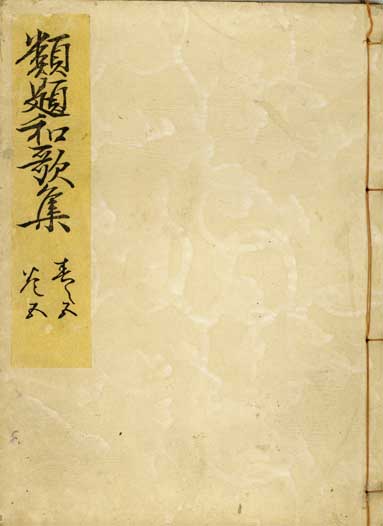 類題和歌集
春之五
巻五